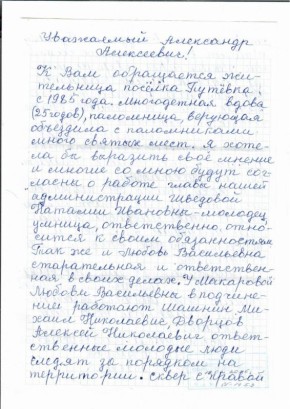 Уважаемый Александр
Алексеевич!
К Вам обращается жи-
тельница посёлка Путёвка
с 1985 года. Многодетная вдова
(25 годов), паломница, верующая
объездила с паломниками
много святых мест. Я хоте-
ла бы выразить своё мнение
и многие со мною будут сог-
ласны о работе главы нашей
администрации Шведовой
Наталии Ивановны - молодец,
умница, ответственно отно-
сится к своим обязанностям
Так же и Любовь Васильевна
старательная и ответствен-
ная в своих делах. У Макаровой
Любови Васильевны в подчине-
нии работают Шашнин Ми-
хаил Николаевич Дворцов
Алексей Николаевич ответ-
ственные молодые люди
следят за порядком на
территории. сквер с